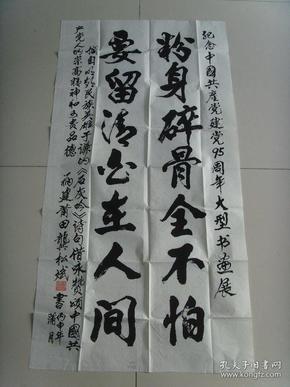 纪念中國共産党建党95周年大型书画展
粉身碎骨全不怕
要留清白在人间
借用明朝民族英雄于谦的《石灰吟》诗句借咏赞颂中國共
产党人的崇高精神和可贵品德
福建莆田龔松斌書
丙申年
蒲月
孔夫子旧书网